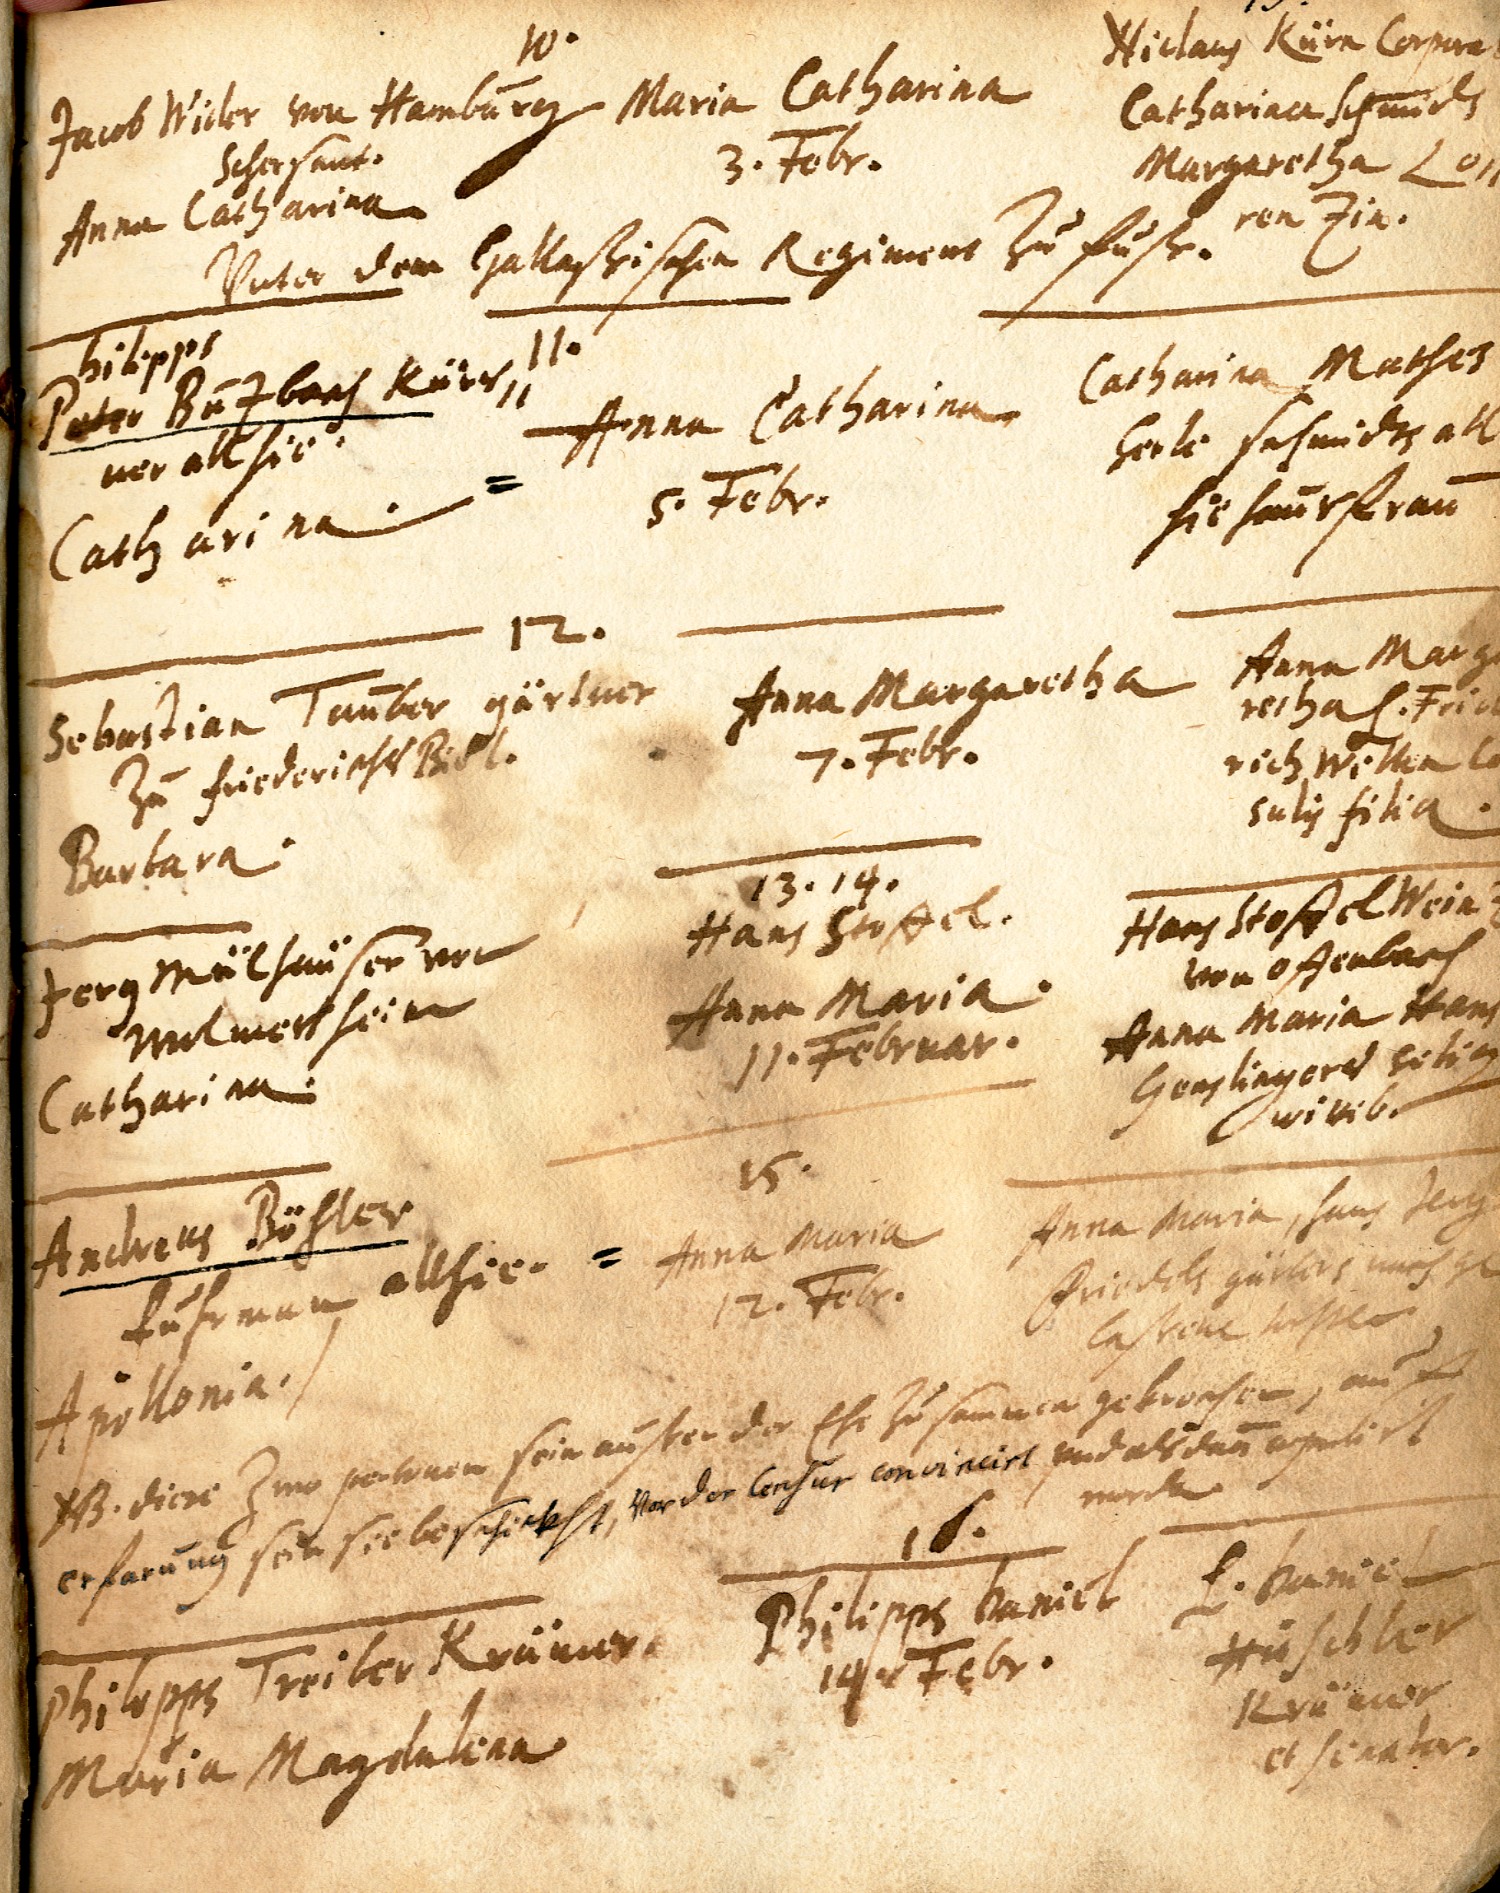 10.
Jacob Wider von Hamburg
Schersant.
Anna Catharina
Maria Catharina
3. Febr.
Niclaus Kürn Corpora
Catharina Schmids
Margaretha Lon
ren Fin.
Vnter dem Gallassischen Regiment Zu fuss.
11.
hilipps
Peter Butzbach Kürs„
ner allhie.
Catharina. =
Anna Catharina
5. Febr.
Catharina Mathes
Herle schmidts all
hie hausfrau
12.
Sebastian Tauber gärtner
Zu friederichs Bihl.
Barbara.
Anna Margaretha
7. Febr.
Anna Marga
retha H. Fried
rich Wetten Co
sulis filia.
13. 14.
Jerg Mülhäuser von
Wolmersheim
Catharina.
Hans Stoffel.
Anna Maria.
11. Februar.
Hans Stoffel Wein
von Offenbach
Anna Maria Hans
Genslingers selig
wittib.
15.
Andreas Böhler
fuhrman allhie. =
Apollonia.
Anna Maria
12. Febr.
Anna Maria, hans Jerg
friedels gärtners nachge
lassene
NB. diese Zwo personen sein ausser der Ehe Zusammen gekrochen, auff
erfarung sein sie beschickht, Vor der Censur convincirt vnd alsdan copulirt
worden.
16.
Philipps Treiber Krämer.
Maria Magdalena.
Philipps Daniel
14. Febr.
H. Daniel
Häuschler
Krämer
et senator.